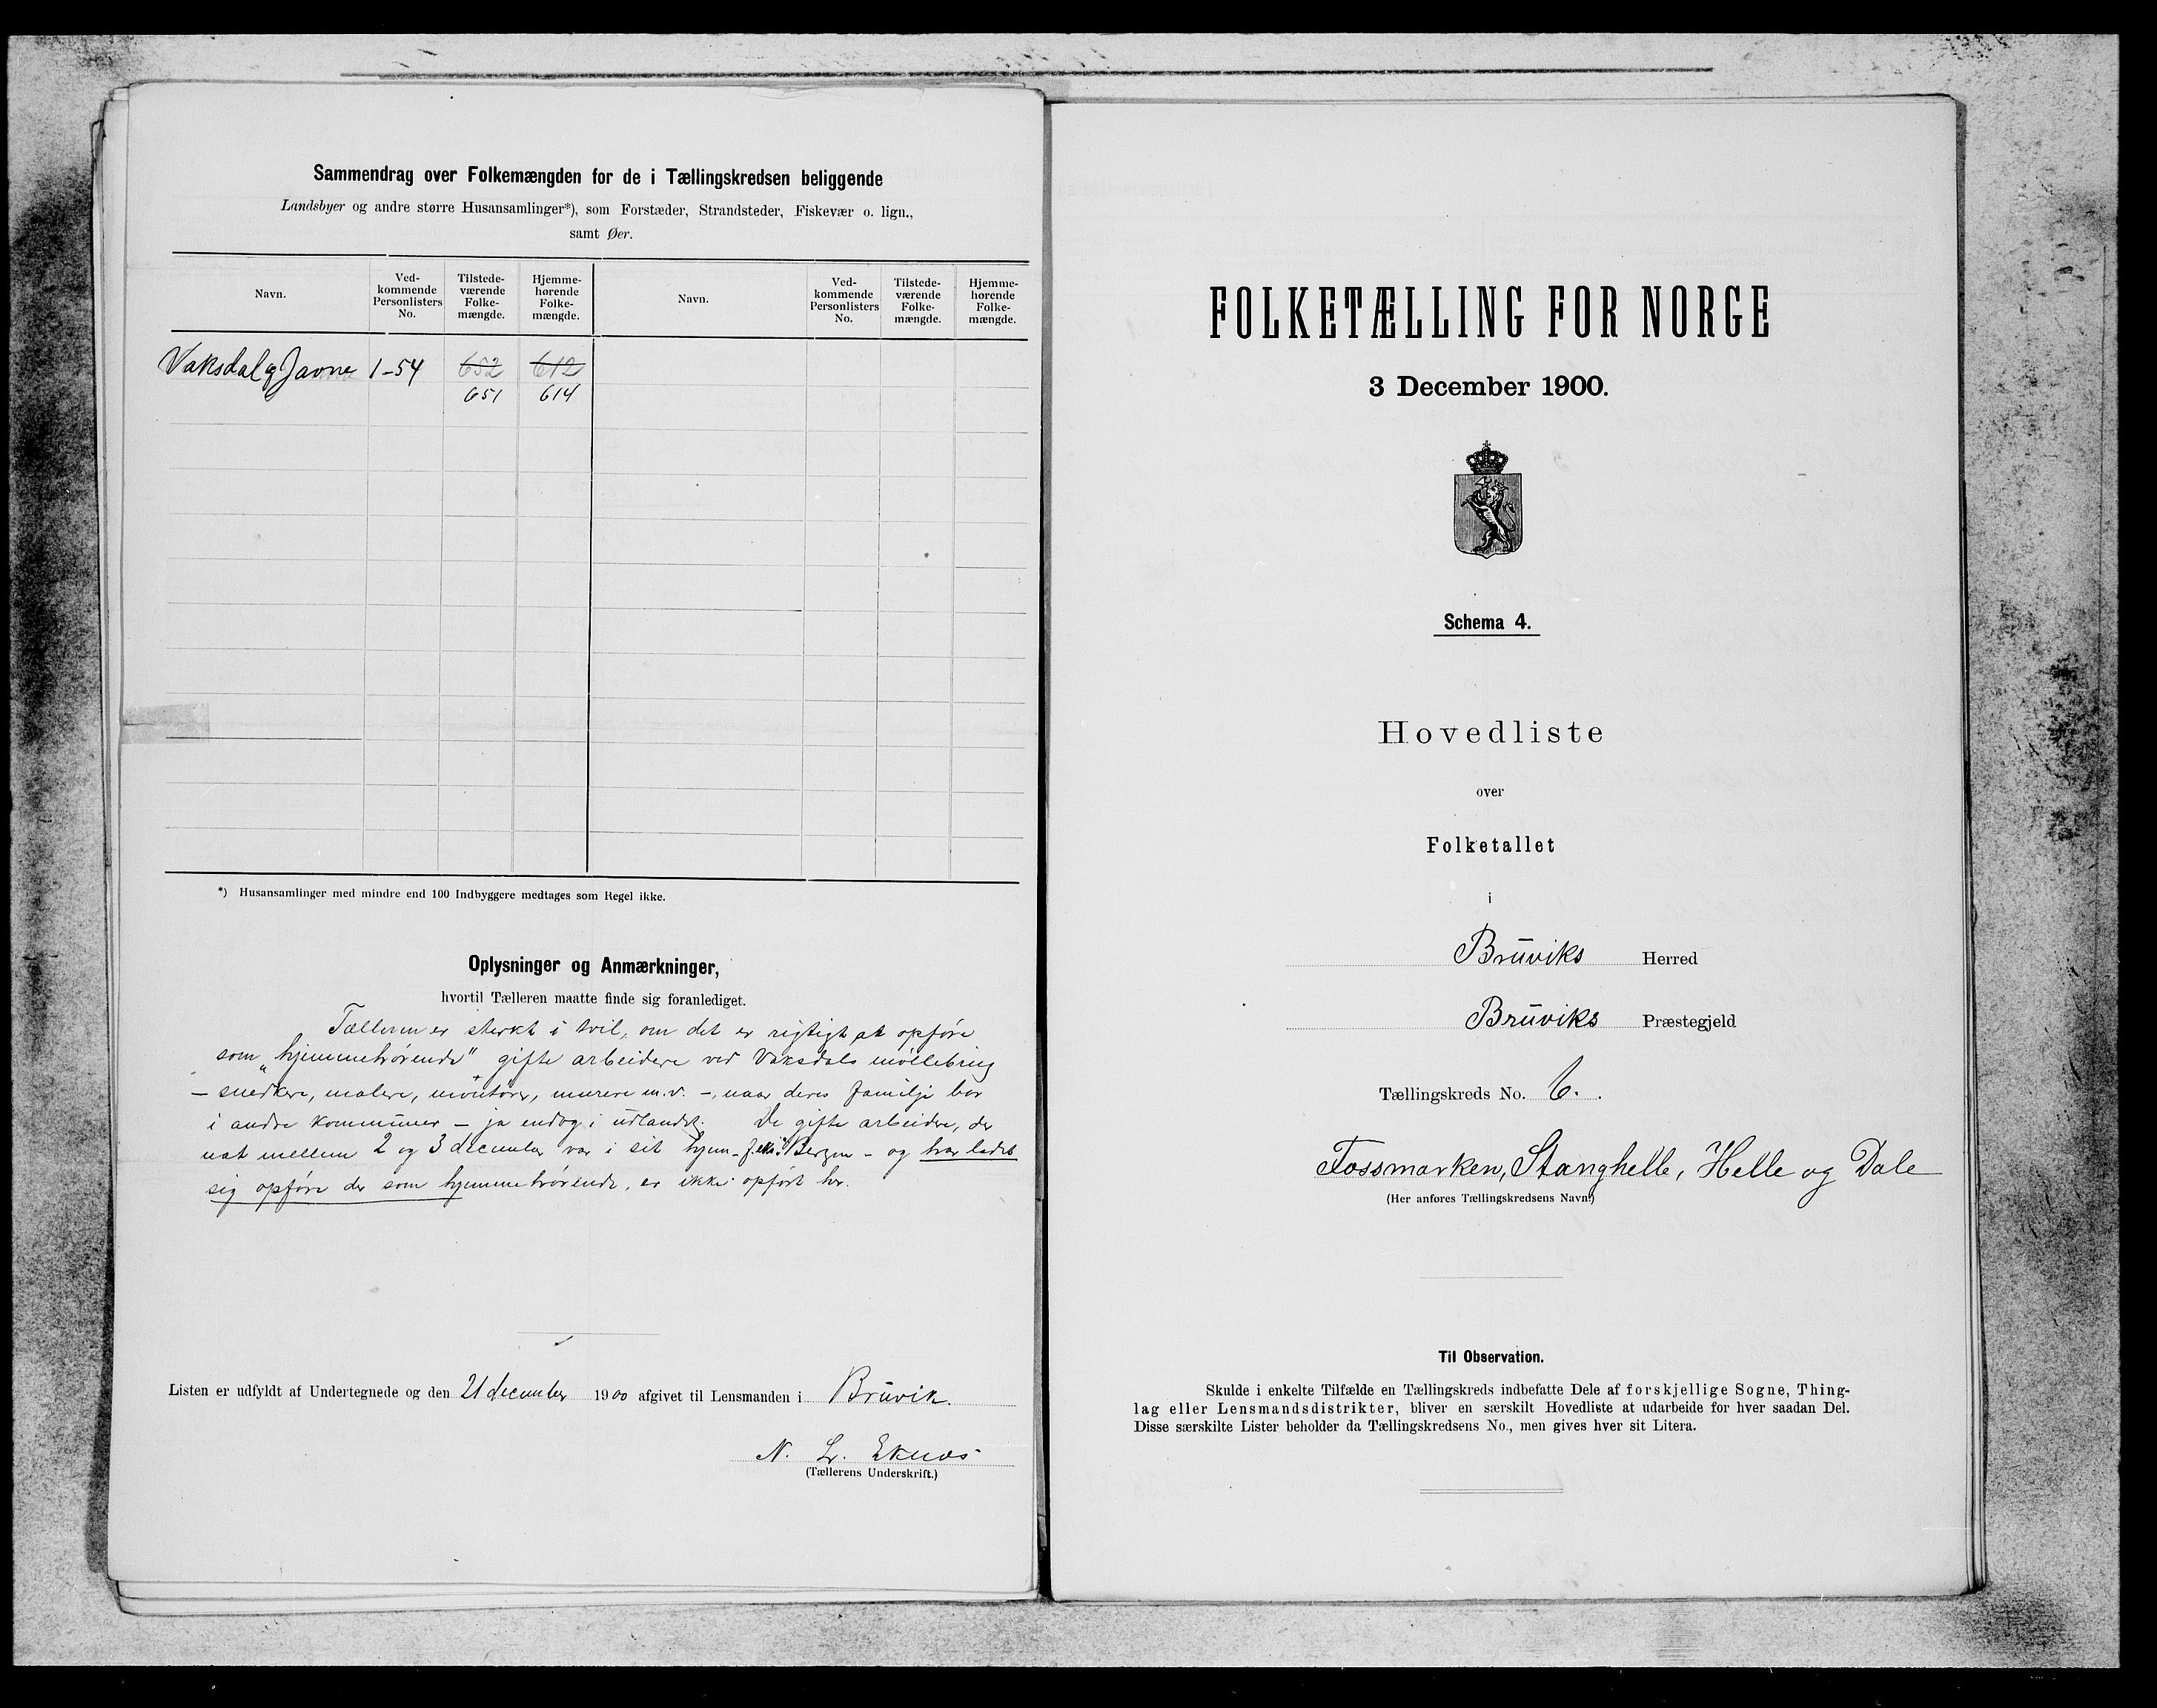 Sammendrag over Folkemængden for de i Tællingskredsen beliggende
Landsbyer og andre større Husansamlinger*), som Forstæder, Strandsteder, Fiskevær o. lign.,
samt Øer.
Navn. Ved-kommende Personlisters No. Tilstede-værende Folke-mængde. Hjemme-hørende Folke-mængde. Navn. Ved-kommende Personlisters No. Tilstede-værende Folke-mængde. Hjemme-hørende Folke-mængde.
Vaksdal og Javne 1-54 652 612
651 614
*) Husansamlinger med mindre end 100 Indbyggere medtages som Regel ikke.
Oplysninger og Anmærkninger,
hvortil Tælleren maatte finde sig foranlediget.
Tælleren er sterkt i tvil, om det er rigtigt at opføre
som „hjemmehørende" gifte arbeidere ved Vaksdals møllebrug
– snedkere, malere, montører, murere m.v. –, naar deres familje bor
i andre kommuner – ja endog i udlandet. De gifte arbeidere, der
nat mellem 2 og 3 december var i sit hjem – f.eks. i Bergen – og har ladet
sig opføre der som hjemmehørende, er ikke opført her.
Listen er udfyldt af Undertegnede og den 21 december 1900 afgivet til Lensmanden i Bruvik.
N. L. Eknæs
(Tællerens Underskrift.)
FOLKETÆLLING FOR NORGE
3 December 1900.
Schema 4.
Hovedliste
over
Folketallet
i
Brūviks Herred
Brūviks Præstegjeld
Tællingskreds No. 6.
Fossmarken, Stanghelle, Helle og Dale
(Her anføres Tællingskredsens Navn.)
Til Observation.
Skulde i enkelte Tilfælde en Tællingskreds indbefatte Dele af forskjellige Sogne, Thing-
lag eller Lensmandsdistrikter, bliver en særskilt Hovedliste at udarbeide for hver saadan Del.
Disse særskilte Lister beholder da Tællingskredsens No., men gives hver sit Litera.